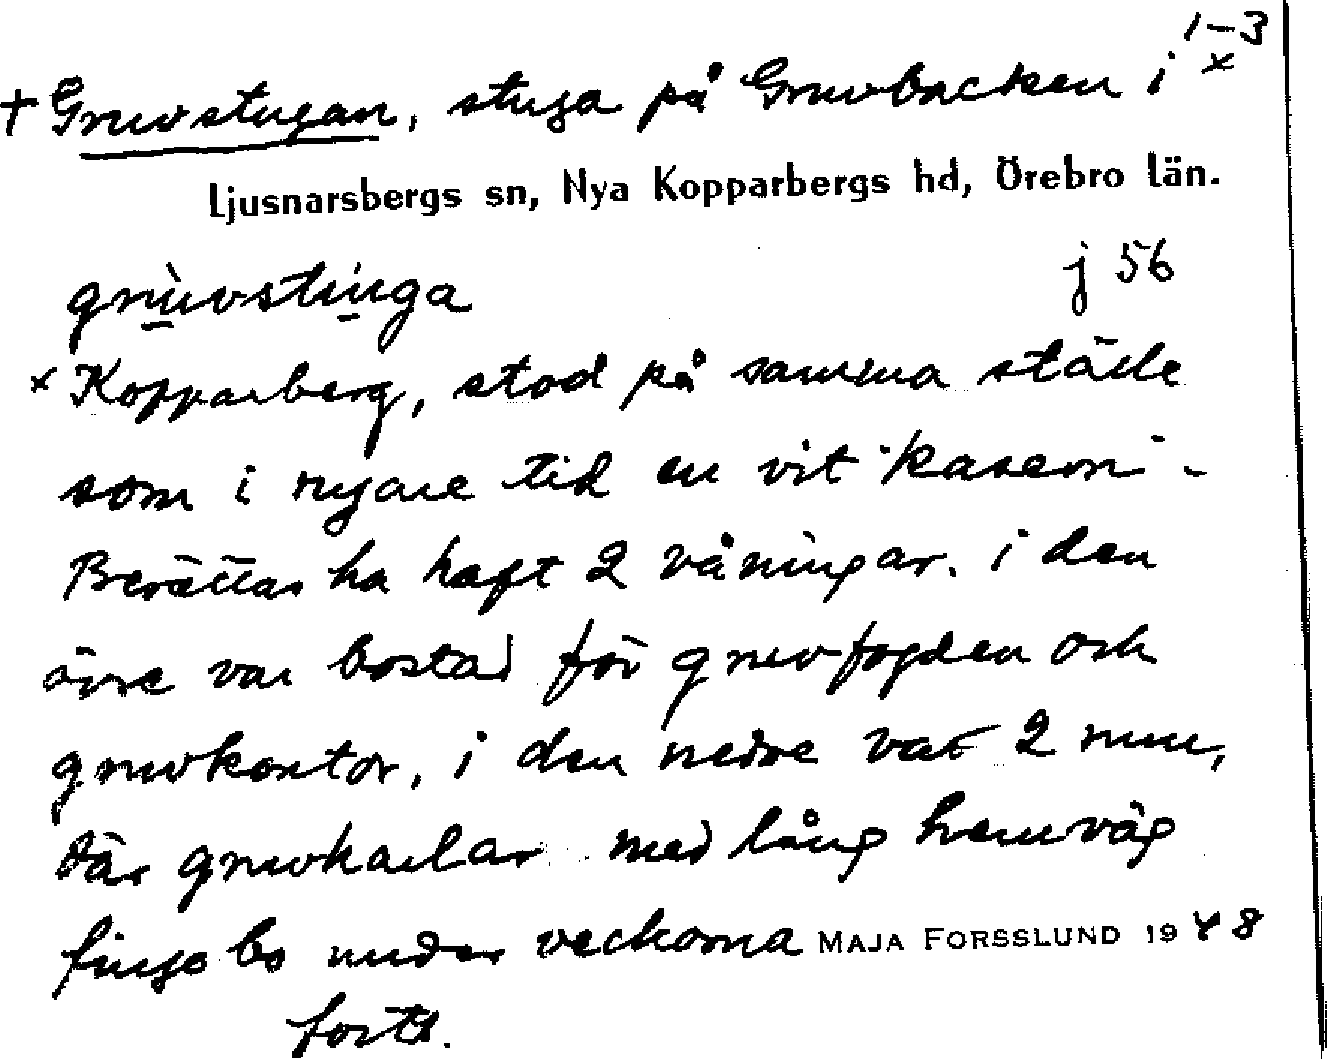 1-3
† Gruvstugan, stuga på Gruvbacken i x
Ljusnarsbergs sn, Nya Kopparbergs hd, Örebro län.
grùvstùga j 56
x Kopparberg, stod på samma ställe
som i nyare tid en vit "kasern".
Berättas ha haft 2 våningar. i den
övre var bostad för gruvfogden och
gruvkontor, i den nedre var 2 rum,
där gruvkarlar med lång hemväg
finge bo under veckorna MAJA FORSSLUND 1948
forts.